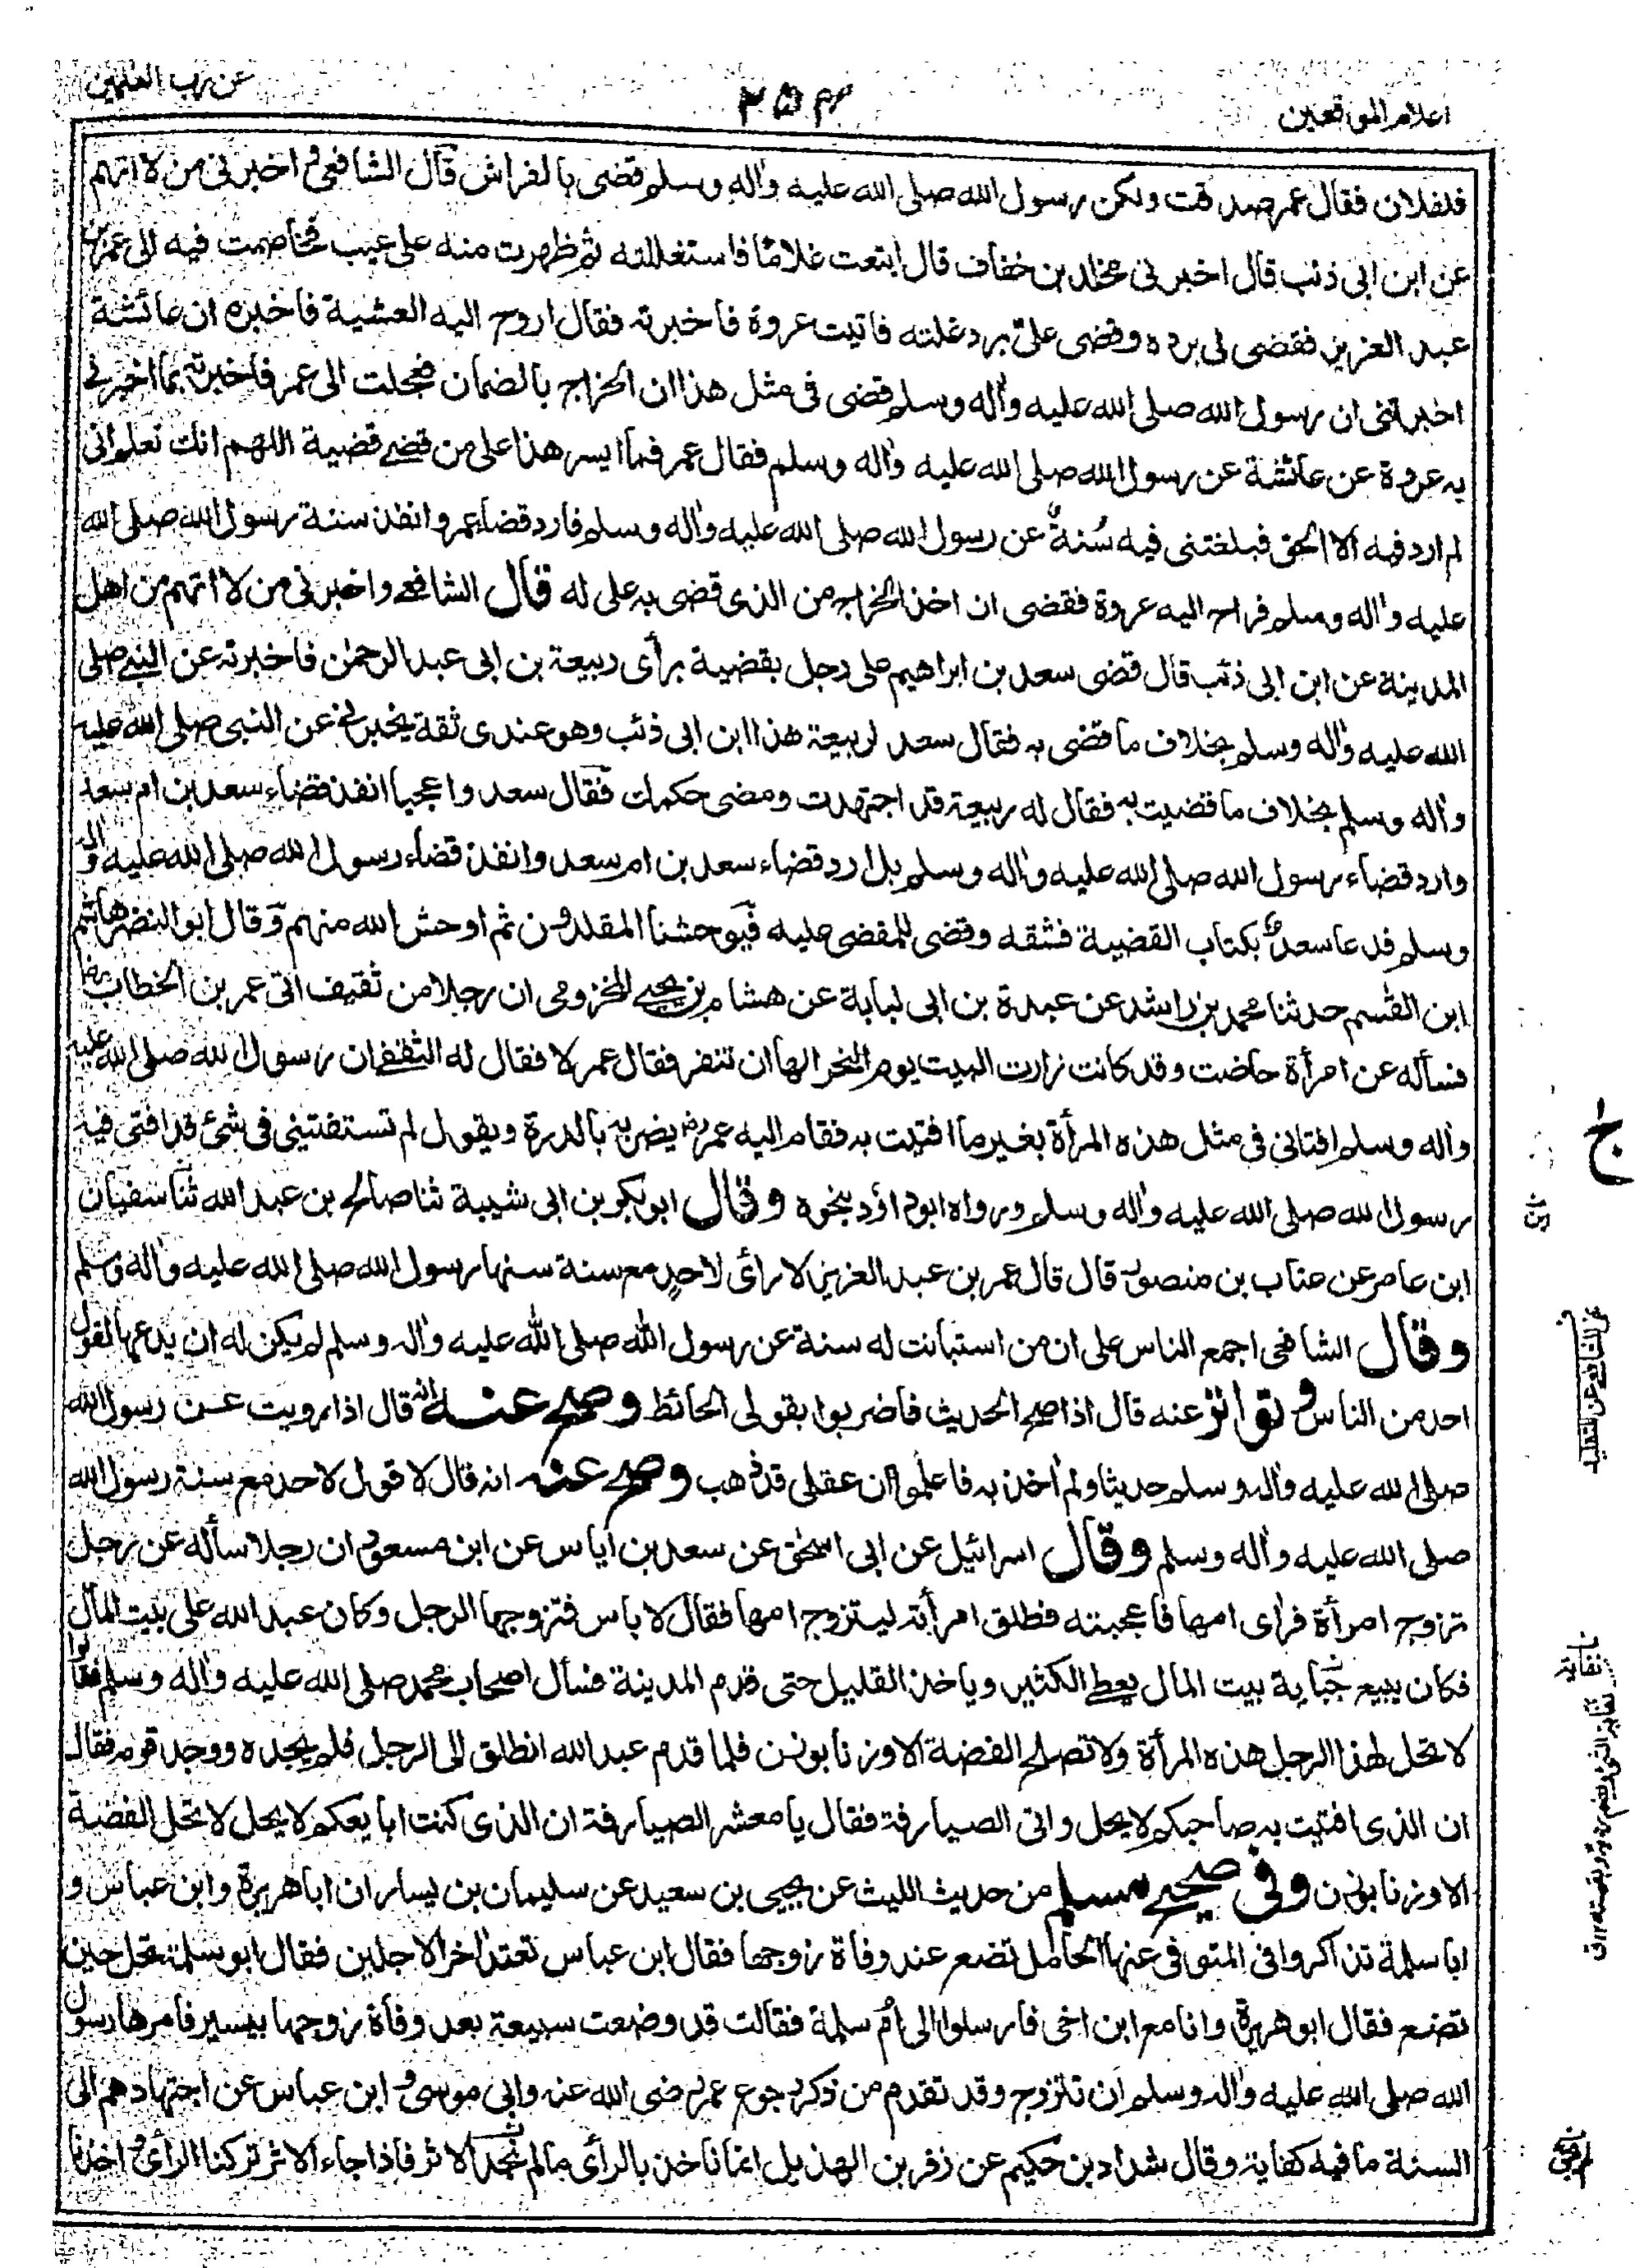 اعلام الموقعين
٢٥٤
عن رب العلمين
فلفلان فقال عمر صدقت ولكن رسول الله صلى الله عليه واٰله وسلم قضى بالفراش قال الشافعى اخبرنى من لا اتهم
عن ابن ابى ذئب قال اخبرنى مخلد بن خفاف قال ابتعت غلاما فاستغللته ثم ظهرت منه على عيب فخاصمت فيه الى عمر بن
عبد العزيز فقضى لى برده وقضى علىّ برد غلته فاتيت عروة فاخبرته فقال اروح اليه العشية فاخبره ان عائشة
اخبرتنى ان رسول الله صلى الله عليه واٰله وسلم قضى فى مثل هذا ان الخراج بالضمان فعجلت الى عمر فاخبرته بما اخبرنى
به عروة عن عائشة عن رسول الله صلى الله عليه واٰله وسلم فقال عمر فما ايسر هذا على من قضے قضية اللهم انك تعلم انى
لم ارد فيه الا الحق فبلغتنى فيه سُنةٌ عن رسول الله صلى الله عليه واٰله وسلم فارد قضاء عمر وانفذ سنة رسول الله صلى الله
عليه واٰله وسلم فراح اليه عروة فقضى ان اخذ الخراج من الذى قضى به على له قال الشافعے واخبرنى من لا اتهم من اهل
المدينة عن ابن ابى ذئب قال قضى سعد بن ابراهيم على رجل بقضية برأى ربيعة بن ابى عبد الرحمٰن فاخبرته عن النبے صلى
الله عليه واٰله وسلم بخلاف ما قضى به فقال سعد لربيعة هذا ابن ابى ذئب وهو عندى ثقة يخبرنى عن النبى صلى الله عليه
واٰله وسلم بخلاف ما قضيت به فقال له ربيعة قد اجتهدت ومضى حكمك فقال سعد واعجبا انفذ قضاء سعد بن ام سعد
وارد قضاء رسول الله صلى الله عليه واٰله وسلم بل ارد قضاء سعد بن ام سعد وانفذ قضاء رسول الله صلى الله عليه واٰله
وسلم فدعا سعد بكتاب القضية فشقه وقضى للمقضى عليه فيوحشنا المقلدون ثم اوحش الله منهم وقال ابو النضر هاشم
ابن القٰسم حدثنا محمد بن راشد عن عبدة بن ابى لبابة عن هشام بن يحيے المخزومى ان رجلا من ثقيف اتى عمر بن الخطاب رض
فسأله عن امرأة حاضت وقد كانت زارت البيت يوم النحر الها ان تنفر فقال عمر لا فقال له الثقفے ان رسول الله صلى الله عليه
واٰله وسلم افتانى فى مثل هذه المرأة بغير ما افتيت به فقام اليه عمر رض يضربه بالدرة ويقول لم تستفتينى فى شئ قد افتى فيه
رسول الله صلى الله عليه واٰله وسلم ورواه ابو داؤد بنحوه وقال ابو بكر بن ابى شيبة ثنا صالح بن عبد الله ثنا سفيان
ابن عامر عن عتاب بن منصور قال قال عمر بن عبد العزيز لا رأى لاحدٍ مع سنة سنها رسول الله صلى الله عليه واٰله وسلم
وقال الشافعى اجمع الناس على ان من استبانت له سنة عن رسول الله صلى الله عليه واٰله وسلم لم يكن له ان يدعها لقول
احد من الناس وتواتر عنه قال اذا صح الحديث فاضربوا بقولى الحائط وصح عنه انه قال اذا رويت عن رسول الله
صلى الله عليه واٰله وسلم حديثا ولم اٰخذ به فاعلموا ان عقلى قد ذهب وصح عنه انه قال لا قول لاحد مع سنة رسول الله
صلى الله عليه واٰله وسلم وقال اسرائيل عن ابى اسحٰق عن سعد بن اياس عن ابن مسعود ان رجلا سأله عن رجل
تزوج امرأة فرأى امها فاعجبته فطلق امرأته ليتزوج امها فقال لا باس فتزوجها الرجل وكان عبد الله على بيت المال
فكان يبيع نفاية بيت المال يعطے الكثير وياخذ القليل حتى قدم المدينة فسأل اصحاب محمد صلى الله عليه واٰله وسلم فقالوا
لا تحل لهذا الرجل هذه المرأة ولا تصلح الفضة الا وزنا بوزن فلما قدم عبد الله انطلق الى الرجل فلم يجده ووجد قومه فقال
ان الذى افتيت به صاحبكم لا يحل واتى الصيارفة فقال يا معشر الصيارفة ان الذى كنت ابايعكم لا يحل لا تحل الفضة
الا وزنا بوزن وفى صحيح مسلم من حديث الليث عن يحيى بن سعيد عن سليمان بن يسار ان ابا هريرة وابن عباس و
ابا سلمة تذاكروا فى المتوفى عنها الحامل تضع عند وفاة زوجها فقال ابن عباس تعتد اٰخر الاجلين فقال ابو سلمة تحل حين
تضع فقال ابو هريرة وانا مع ابن اخى فارسلوا الى اُم سلمة فقالت قد وضعت سبيعة بعد وفاة زوجها بيسير فامرها رسول
الله صلى الله عليه واٰله وسلم ان تتزوج وقد تقدم من ذكر رجوع عمر رضى الله عنه وابى موسى و ابن عباس عن اجتهادهم الى
السنة ما فيه كفاية وقال شداد بن حكيم عن زفر بن الهذيل انما ناخذ بالرأى ما لم نجد الاثر فاذا جاء الاثر تركنا الرأى واخذنا
ج